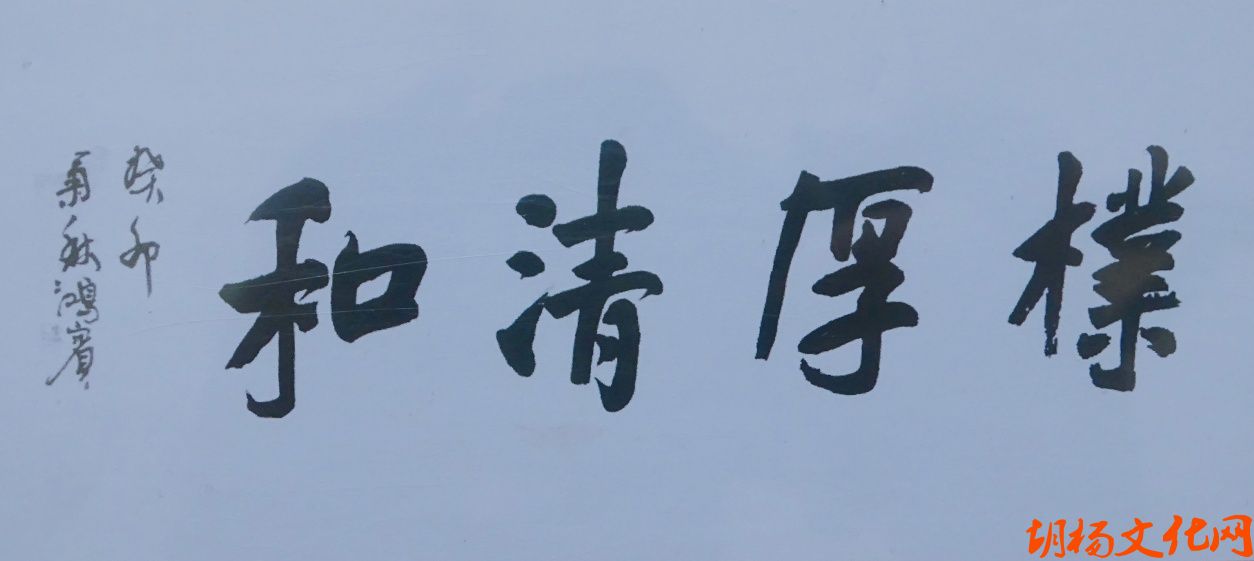 樸厚清和
癸卯
秋鴻賓
胡杨文化网